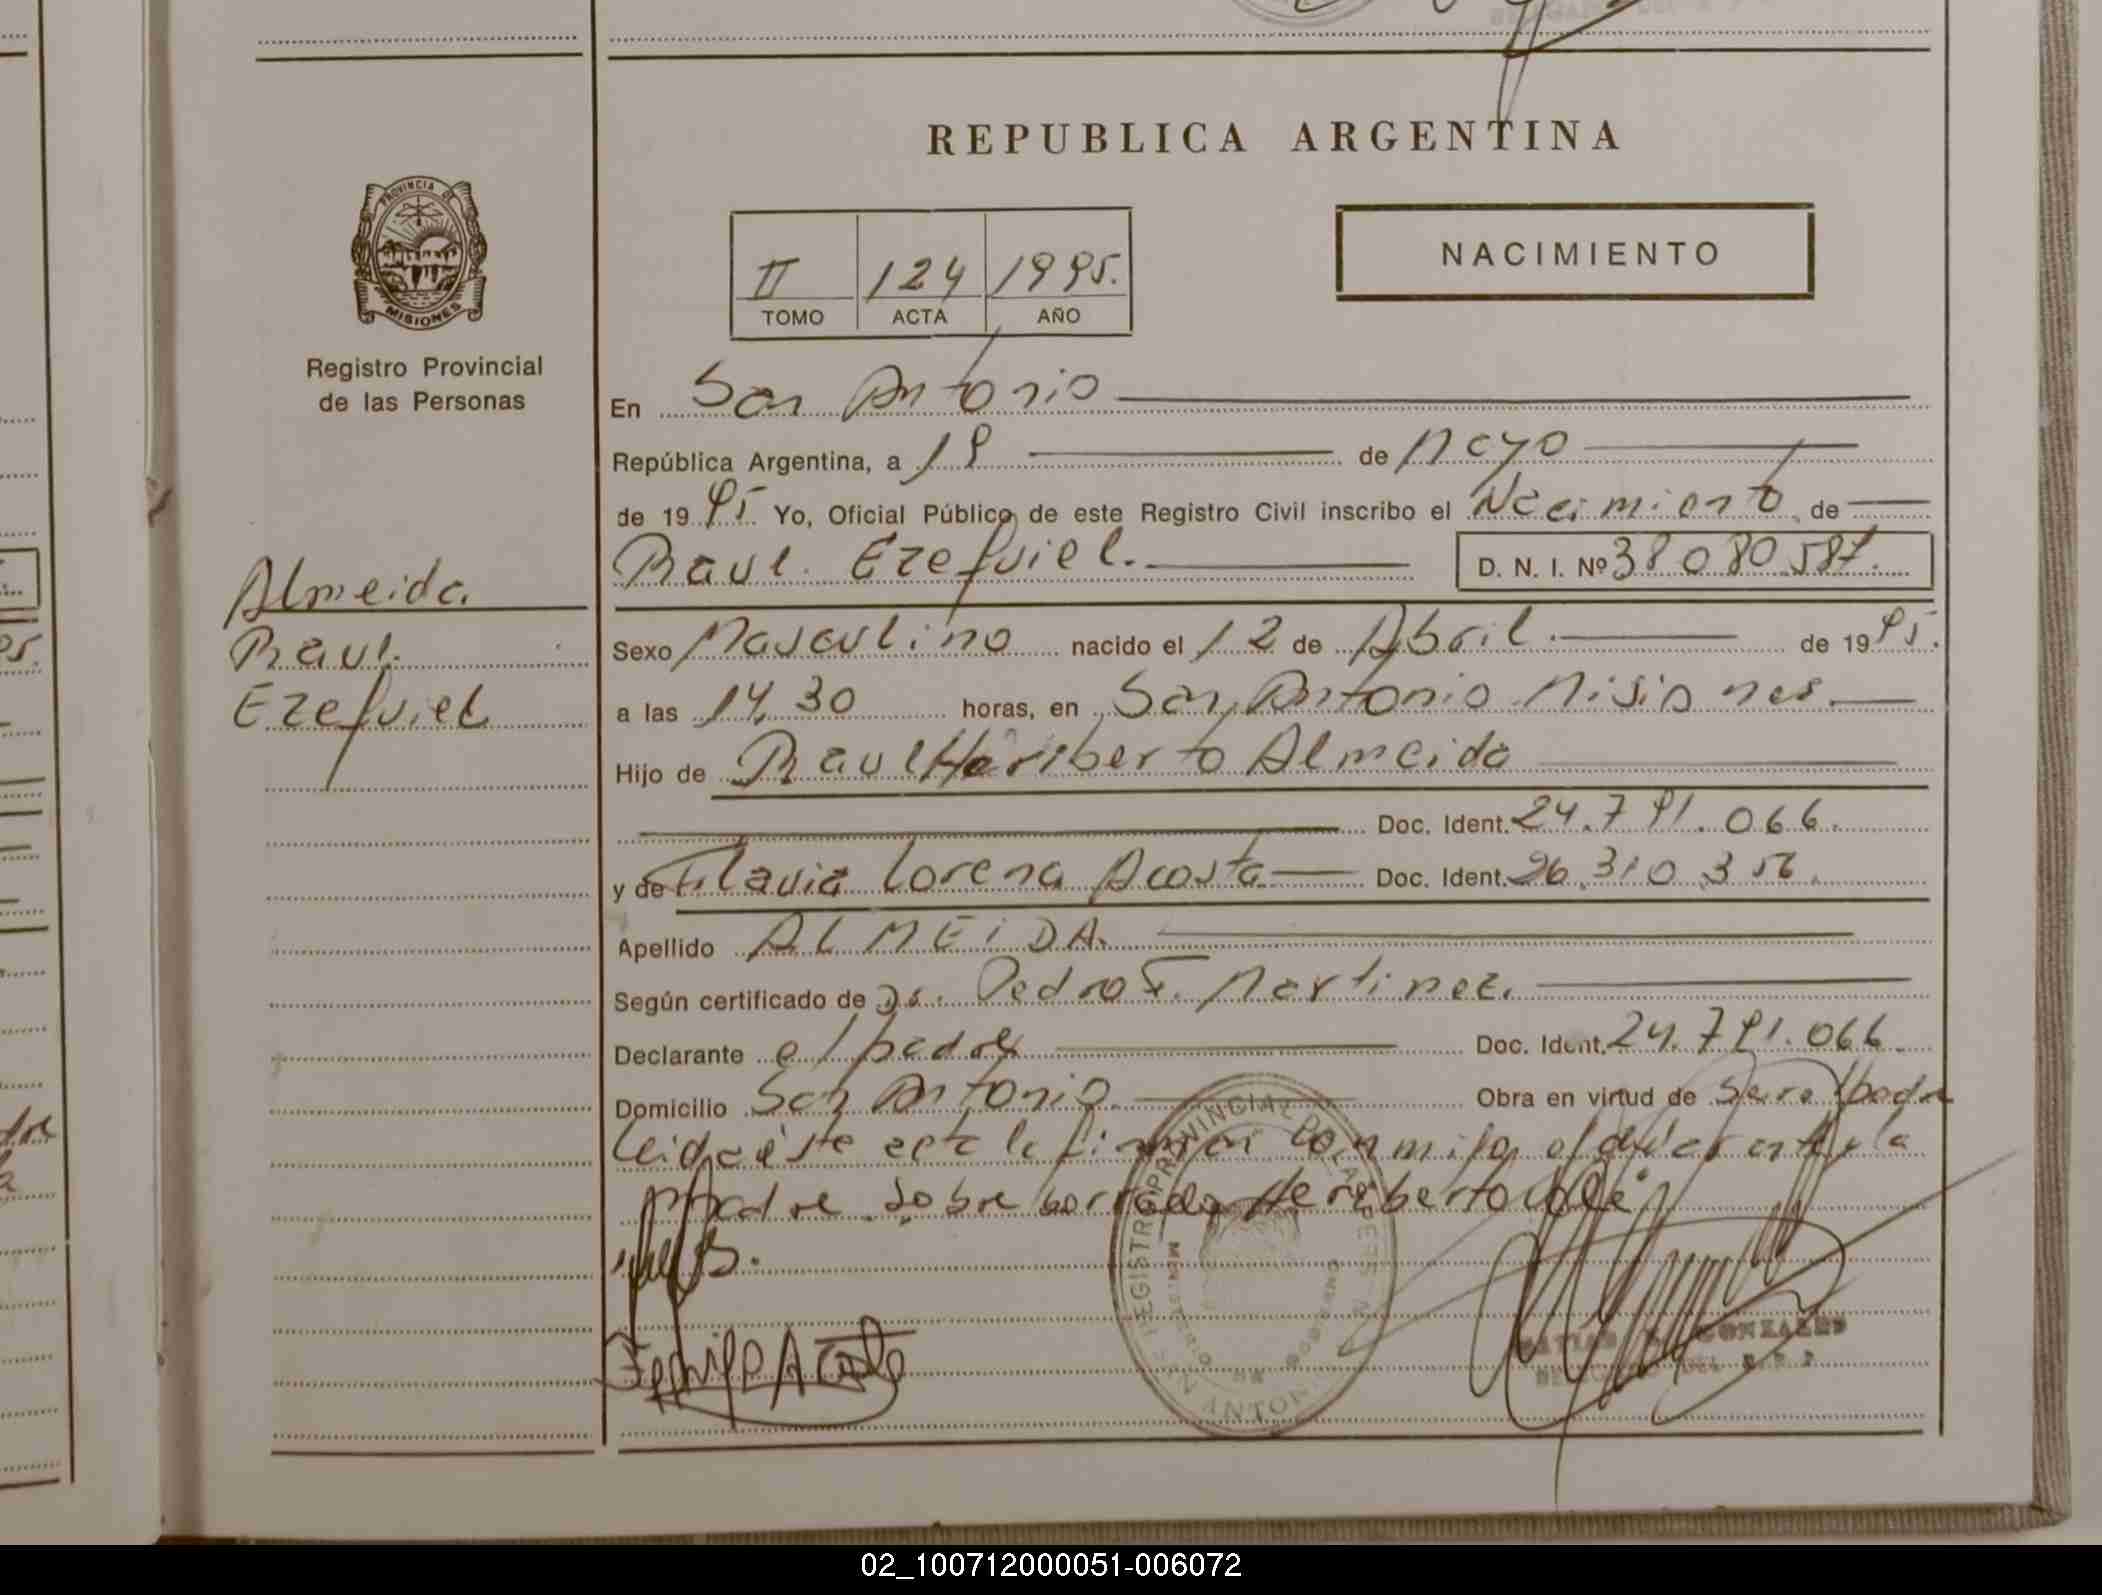 REPUBLICA ARGENTINA
NACIMIENTO
II 124 1995.
TOMO ACTA AÑO
PROVINCIA DE
MISIONES
Registro Provincial
de las Personas
Almeida
Raul
Ezequiel
En San Antonio
República Argentina, a 19 de Mayo
de 1995 Yo, Oficial Público de este Registro Civil inscribo el Nacimiento de
Raul Ezequiel. D. N. I. Nº 38080587.
Sexo Masculino nacido el 12 de Abril de 1995.
a las 14,30 horas, en San Antonio Misiones
Hijo de Raul Heriberto Almeida
Doc. Ident. 24.791.066.
y de Flavia Lorena Acosta Doc. Ident. 26.310.356.
Apellido ALMEIDA.
Según certificado de Dr. Pedro F. Martinez.
Declarante el padre Doc. Ident. 24.791.066
Domicilio San Antonio. Obra en virtud de Ser el padre
leida éste acta la firman conmigo el declarante y la
Madre. Sobre borrado Heriberto vale
REGISTRO PROVINCIAL DE LAS PERSONAS
GONZALES
02_100712000051-006072